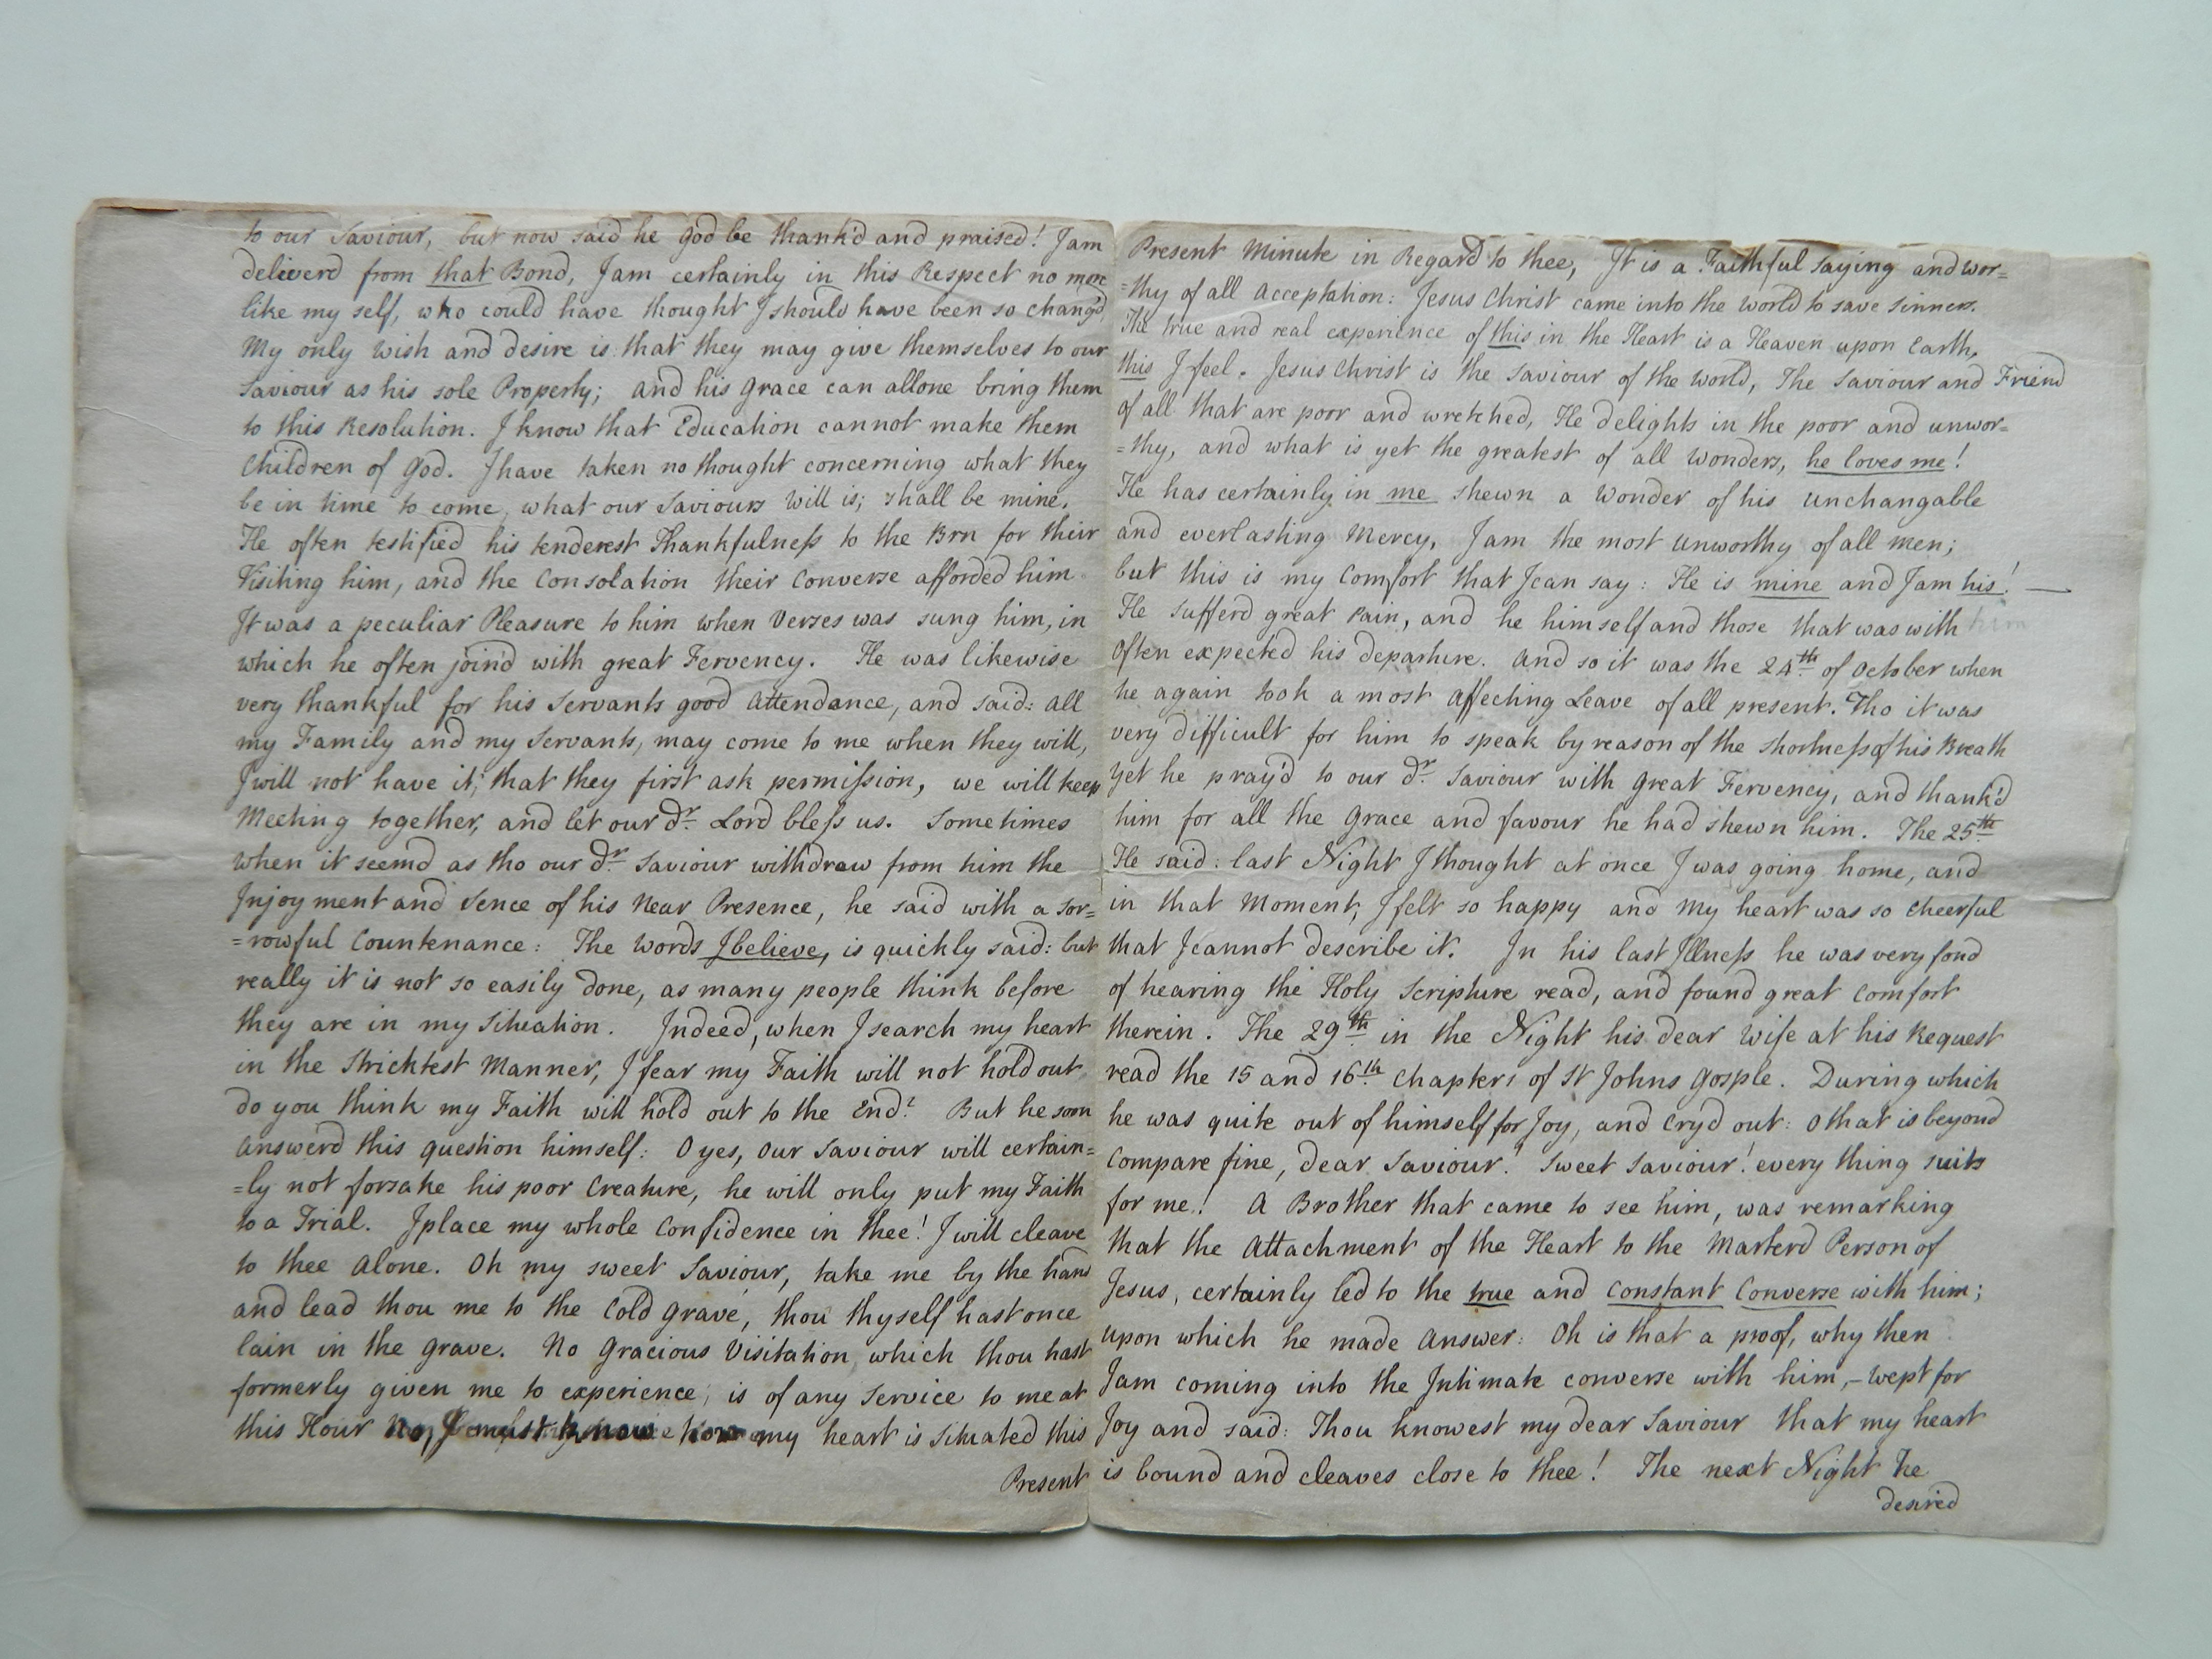 to our Saviour, but now said he God be thank'd and praised! I am
deliverd from that Bond, I am certainly in this Respect no more
like my self, who could have thought I should have been so chang'd,
My only wish and desire is that they may give themselves to our
Saviour as his sole Property; and his Grace can allone bring them
to this Resolution. I know that Education cannot make them
Children of God. I have taken no thought concerning what they
be in time to come, what our Saviours will is; shall be mine.
He often testified his tenderest Thankfulness to the Brn for their
Visiting him, and the Consolation their Converse afforded him.
It was a peculiar Pleasure to him when Verses was sung him, in
which he often join'd with great Fervency. He was likewise
very thankful for his Servants good Attendance, and said: all
my Family and my Servants, may come to me when they will,
I will not have it, that they first ask permission, we will keep
Meeting together, and let our dr. Lord bless us. Sometimes
when it seemd as tho our dr. Saviour withdraw from him the
Injoyment and Sence of his Near Presence, he said with a sor=
=rowful Countenance: The words I believe, is quickly said: but
really it is not so easily done, as many people think before
they are in my Situation. Indeed, when I search my heart
in the Stricktest Manner, I fear my Faith will not hold out,
do you think my Faith will hold out to the End? But he soon
answerd this question himself: O yes, our Saviour will certain=
=ly not forsake his poor Creature, he will only put my Faith
to a Trial. I place my whole Confidence in thee! I will cleave
to thee alone. Oh my sweet Saviour, take me by the hand
and lead thou me to the Cold Grave, thou thyself hast once
lain in the grave. No Gracious Visitation, which thou hast
formerly given me to experience, is of any Service to me at
this Hour no, I must know how my heart is Situated this
Present
Present Minute in Regard to thee, It is a Faithful Saying and wor=
=thy of all Acceptation: Jesus Christ came into the World to save Sinners.
The true and real experience of this in the Heart is a Heaven upon Earth,
this I feel. Jesus Christ is the Saviour of the World, The Saviour and Friend
of all that are poor and wretched, He delights in the poor and unwor=
=thy, and what is yet the greatest of all Wonders, he loves me!
He has certainly in me shewn a Wonder of his unchangable
and everlasting Mercy, I am the most unworthy of all Men;
but this is my Comfort that I can say: He is mine and I am his! —
He Sufferd great Pain, and he himself and those that was with him
Often expected his departure. And so it was the 24th. of October when
he again took a most affecting Leave of all present. Tho it was
very difficult for him to speak by reason of the Shortness of his Breath
yet he pray'd to our dr. Saviour with great Fervency, and thank'd
him for all the Grace and favour he had shewn him. The 25th.
He said: last Night I thought at once I was going home, and
in that Moment, I felt so happy and my heart was so Cheerful
that I cannot describe it. In his last Illness he was very fond
of hearing the Holy Scripture read, and found great Comfort
therein. The 29th. in the Night his dear Wife at his Request
read the 15 and 16th. Chapters of St Johns Gosple. During which
he was quite out of himself for Joy, and Cry'd out: O that is beyond
Compare fine, dear Saviour! Sweet Saviour! every thing suits
for me! A Brother that came to see him, was remarking
that the Attachment of the Heart to the Marterd Person of
Jesus, certainly led to the true and Constant Converse with him;
upon which he made Answer: Oh is that a proof, why then
I am coming into the Intimate converse with him, – wept for
Joy and said: Thou knowest my dear Saviour that my heart
is bound and cleaves close to thee! The next Night he
desired